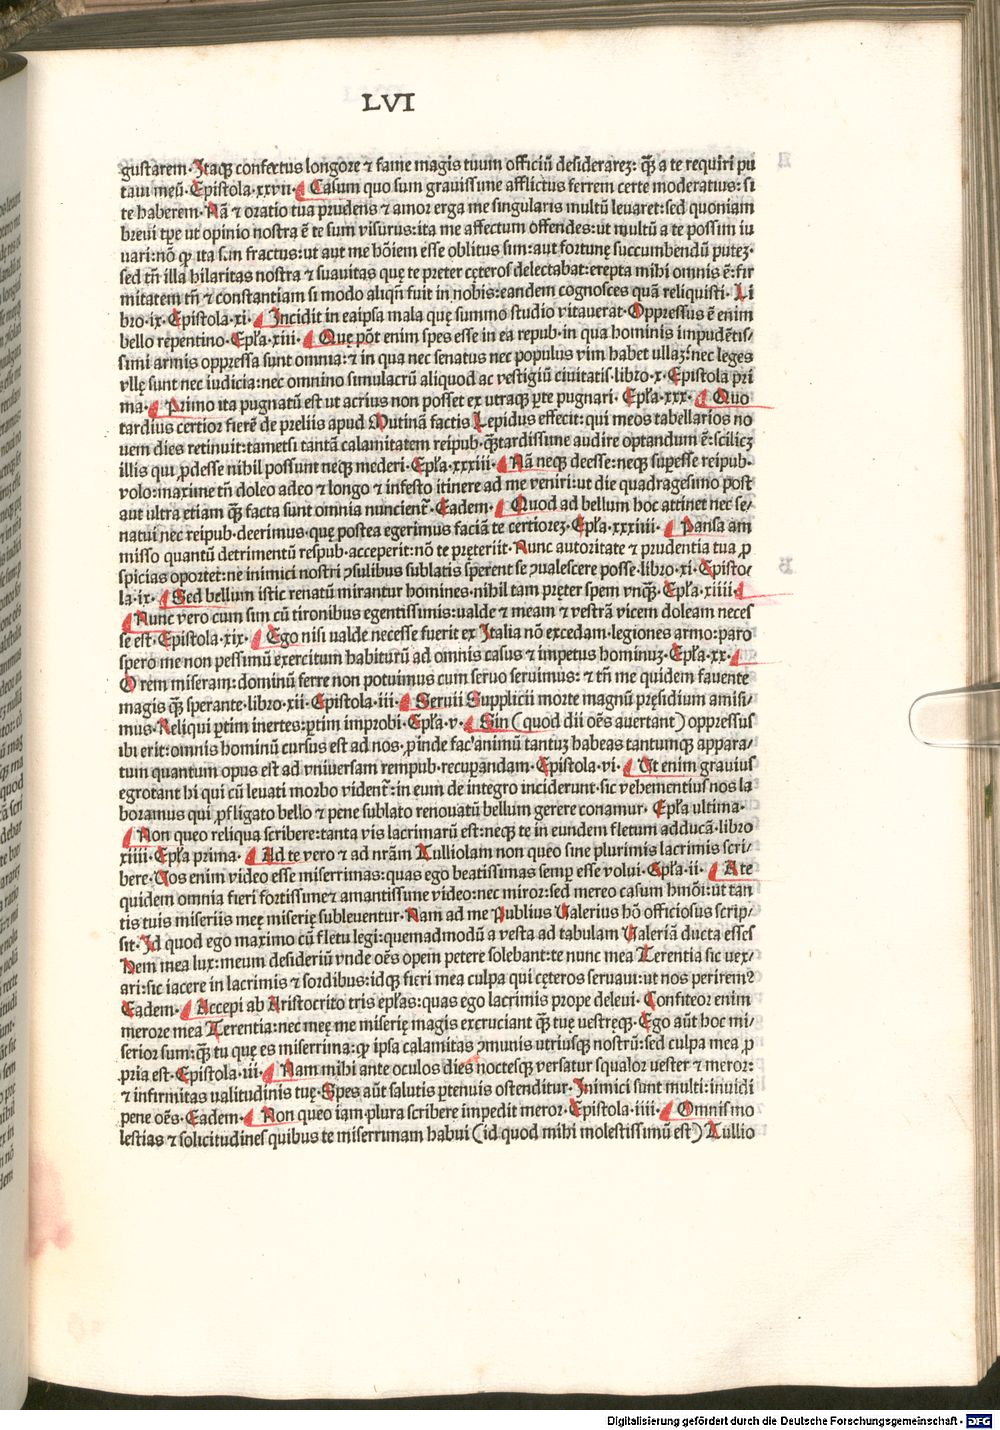 LVI
gustarem·Itaqꝫ confectus longore ⁊ fame magis tuum officiū desiderareꝫ: qꝫ̄ a te requiri pu
taui meū·Epistola·xxvii·Casum quo sum grauissime afflictus ferrem certe moderatius: si
te haberem·Nā ⁊ oratio tua prudens ⁊ amor erga me singularis multū leuaret:sed quoniam
breui tꝑe ut opinio nostra ē te sum visurus:ita me affectum offendes:ut multū a te possim iu
uari:nō ꝙ ita s.in fractus:ut aut me hōiem esse oblitus sim:aut fortunę succumbendū puteꝫ·
sed tn̄ illa hilaritas nostra ⁊ suauitas que te preter cęteros delectabat:erepta mihi omnis ē:fir
mitatem tn̄ ⁊ constantiam si modo aliqn̄ fuit in nobis:eandem cognosces quā reliquisti·Li
bro·ix·Epistola·xi·Incidit in eaipsa mala quę summo studio vitauerat·Oppressus ē enim
bello repentino·Epła·xiii·Quę pōt enim spes esse in ea repub·in qua hominis impudētis/
simi armis oppressa sunt omnia:⁊ in qua nec senatus nec populus vim habet ullaꝫ:nec leges
vllę sunt nec iudicia:nec omnino simulacrū aliquod ac vestigiū ciuitatis·libro·x·Epistola pri
ma·Primo ita pugnatū est ut acrius non posset ex utraqꝫ ꝑte pugnari·Epła·xxx·Quo
tardius certior fierē de preliis apud Mutinā factis Lepidus effecit:qui meos tabellarios no
uem dies retinuit:tametsi tantā calamitatem reipub·qꝫ̄tardissime audire optandum ē:scilicꝫ
illis qui ꝓdesse nihil possunt neqꝫ mederi·Epła·xxxiii·Nā neqꝫ deesse:neqꝫ supesse reipub·
volo:maxime tn̄ doleo adeo ⁊ longo ⁊ infesto itinere ad me veniri:ut die quadragesimo post
aut ultra ętiam qꝫ̄ facta sunt omnia nuncient̄·Eadem·Quod ad bellum hoc attinet nec se/
natui nec reipub·deerimus·quę postea egerimus faciā te certioreꝫ·Epła·xxxiiii·Pansa am
misso quantū detrimentū respub·acceperit:nō te pręteriit·Nunc autoritate ⁊ prudentia tua ꝓ
spicias oportet:ne inimici nostri ↄsulibus sublatis sperent se ↄualescere posse·libro·xi·Episto/
la·ix·Sed bellum istic renatū mirantur homines·nihil tam pręter spem vnqꝫ̄·Epła·xiiii·
Nunc vero cum sim cū tironibus egentissimis:ualde ⁊ meam ⁊ vestrā vicem doleam neces
se est·Epistola·xix·Ego nisi ualde necesse fuerit ex Italia nō excedam·legiones armo:paro
spero me non pessimū exercitum habiturū ad omnis casus ⁊ impetus hominuꝫ·Epła·xx·
O rem miseram:dominū ferre non potuimus cum seruo seruimus: ⁊ tn̄ me quidem fauente
magis qꝫ̄ sperante·libro·xii·Epistola·iii·Seruii Supplicii morte magnū pręsidium amisi/
mus·Reliqui ꝑtim inertes:ꝑtim improbi·Epła·v·Sin (quod dii oēs auertant) oppressus
ibi erit:omnis hominū cursus est ad nos·ꝓinde fac'animū tantuꝫ habeas tantumqꝫ appara/
tum quantum opus est ad vniuersam rempub·recuꝑandam·Epistola·vi·Ut enim grauius
egrotant hi qui cū leuati morbo vident̄:in eum de integro inciderunt·sic vehementius nos la
boramus qui ꝓfligato bello ⁊ pene sublato renouatū bellum gerere conamur·Epła ultima·
Non queo reliqua scribere:tanta vis lacrimarū est:neqꝫ te in eundem fletum adducā·libro
xiiii·Epła prima·Ad te vero ⁊ ad nrām Tulliolam non queo sine plurimis lacrimis scri/
bere·Uos enim video esse miserrimas:quas ego beatissimas semꝑ esse volui·Epła·ii·A te
quidem omnia fieri fortissime⁊ amantissime video:nec miror:sed mereo casum hmōi:ut tan
tis tuis miseriis meę miserię subleuentur·Nam ad me Publius Ualerius hō officiosus scrip/
sit·Id quod ego maximo cū fletu legi:quemadmodū a vesta ad tabulam Ualeriā ducta esses
Hem mea lux:meum desideriū vnde oēs opem petere solebant:te nunc mea Terentia sic uex/
ari:sic iacere in lacrimis ⁊ sordibus:idqꝫ fieri mea culpa qui cęteros seruaui:ut nos perirem?
Eadem·Accepi ab Aristocrito tris epłas:quas ego lacrimis prope deleui·Confiteor enim
merore mea Terentia:nec meę me miserię magis excruciant qꝫ̄ tuę uestręqꝫ·Ego aūt hoc mi/
serior sum:qꝫ̄ tu quę es miserrima:ꝙ ipsa calamitas ↄmunis utriusqꝫ nostrū:sed culpa mea ꝓ
pria est·Epistola·iii·Nam mihi ante oculos dies noctesqꝫ versatur squalor uester ⁊ meror:
⁊ infirmitas ualitudinis tuę·Spes aūt salutis ꝑtenuis ostenditur·Inimici sunt multi:inuidi
pene oēs·Eadem·Non queo iam plura scribere impedit meror·Epistola·iiii·Omnis mo
lestias ⁊ solicitudines quibus te miserrimam habui (id quod mihi molestissimū est) Tullio
Digitalisierung gefördert durch die Deutsche Forschungsgemeinschaft - DFG